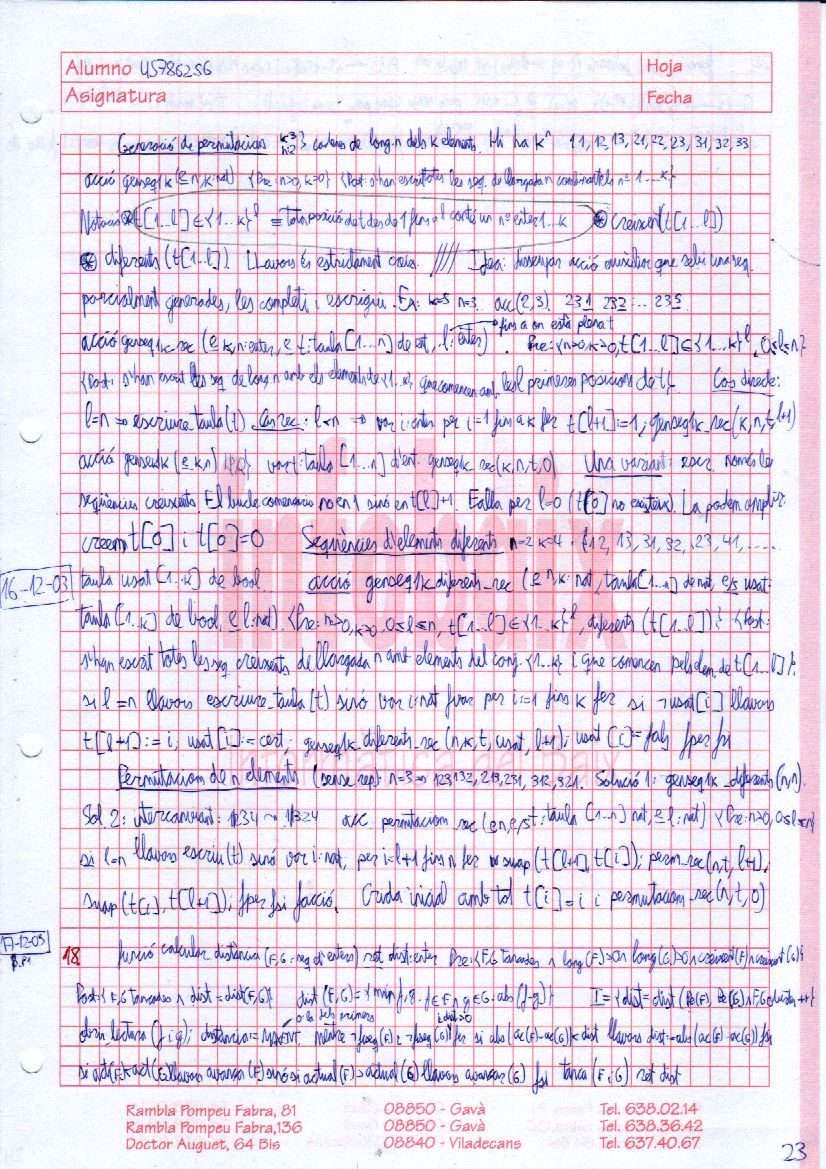 Alumno US786256 Hoja
Asignatura Fecha
Generació de permutacions k=3 n=2 } cadenes de long. n dels k elements. Hi ha k^n 11, 12, 13, 21, 22, 23, 31, 32, 33
acció genseq1k (e n, k: nat) {Pre: n>0, k>0} {Post: s'han escrit totes les seq. de llargada n combinant els nº 1...k}
Notació t[1...l] ∈ {1...k}^l ≡ Tota posició de t des de 1 fins a l conté un nº enter 1...k creixent (t[1...l])
diferents (t[1...l]). Llavors és estrictament creix. //// Idea: dissenyar acció auxiliar que rebi una seq.
parcialment generades, les completi i escrigui. Ex: k=5 n=3. acc(2,3). 231 232 ... 235
fins a on està plena t
acció genseq1k_rec (e k, n: enter, e t: taula [1...n] de ent, l: enter). Pre: {n>0, k>0, t[1...l] ∈ {1...k}^l, 0≤l≤n}
{Post: s'han escrit les seq. de long n amb els elements de {1..k}, que comencen amb les l primeres posicions de t}. Cas directe:
l=n → escriure_taula(t). Cas rec: l<n → var i: enter per i=1 fins a k fer t[l+1]:=1; genseq1k_rec(k, n, t, l+1)
acció genseq1k (e k, n) var t: taula [1...n] d'ent. genseq1k_rec(k, n, t, 0) Una variant: escr. només les
seqüències creixents. El bucle començaria no en 1 sinó en t[l]+1. Falla per l=0 (t[0] no existeix). La podem ampliar:
creem t[0] i t[0]=0 Seqüències d'elements diferents n=2 k=4 {12, 13, 31, 32, 23, 41, ....
16-12-03 taula usat [1..k] de bool. acció genseq1k_diferents_rec (e n, k: nat, taula[1...n] de nat, e/s usat:
taula [1...k] de bool, e l: nat). {Pre: n>0, k>0, 0≤l≤n, t[1...l] ∈ {1...k}^l, diferents (t[1...l])} {Post:
s'han escrit totes les seq. creixents de llargada n amb elements del conj. {1...k} i que comencen pels elem. de t[1...l]}.
si l=n llavors escriure_taula(t) sinó var i: nat fvar per i:=1 fins k fer si ¬usat[i] llavors
t[l+1]:=i; usat[i]:=cert; genseq1k_diferents_rec (n, k, t, usat, l+1); usat[i]:=fals fper fsi
Permutacions de n elements (sense rep) n=3 → 123, 132, 213, 231, 312, 321. Solució 1: genseq1k_diferents (n, n).
Sol. 2: intercanviant: 1234 ~ 1324 acc. permutacions_rec (e n, e/s t: taula [1...n] nat, e l: nat) {Pre: n>0, 0≤l≤n}
si l=n llavors escriu(t) sinó var i: nat; per i=l+1 fins n fer swap (t[l+1], t[i]); perm_rec(n, t, l+1);
swap (t[i], t[l+1]); fper fsi facció. Cruda inicial amb tot t[i]=i i permutacions_rec(n, t, 0)
17-12-03
18 funció calcular distància (F, G: seq d'enters) ret dist: enter Pre: {F, G tancades ∧ long(F)>0 ∧ long(G)>0 ∧ creixent(F) ∧ creixent(G)}
Post: {F, G tancades ∧ dist = dist(F, G)} dist (F, G) = {min f, g: f∈F ∧ g∈G: abs (f-g)}
obrir lectura (f i g); distancia:= MAXINT mentre ¬fseq(F) i ¬fseq(G) fer si abs (ac(F)-ac(G)) < dist llavors dist:=abs(ac(F)-ac(G)) fsi
si act(F)<act(G) llavors avançar (F) sinó si actual(F) > actual(G) llavors avançar (G) fsi tanca (F i G) ret dist
Rambla Pompeu Fabra, 81 08850 - Gavà Tel. 638.02.14
Rambla Pompeu Fabra,136 08850 - Gavà Tel. 638.36.42
Doctor Auguet, 64 Bis 08840 - Viladecans Tel. 637.40.67
23